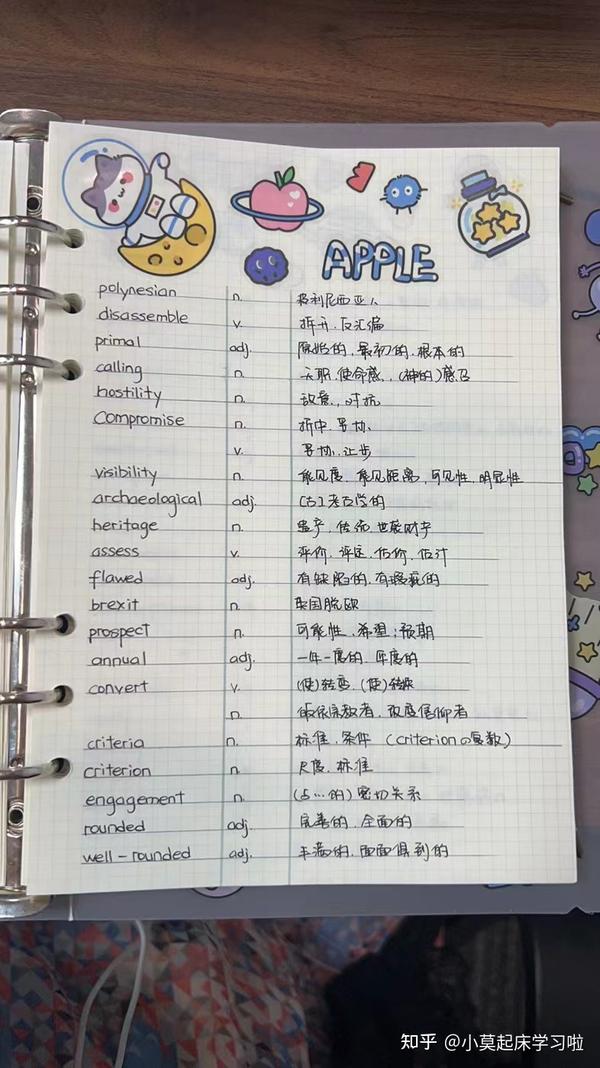 APPLE
polynesian n. 波利尼西亚人
disassemble v. 拆开、反汇编
primal adj. 原始的、最初的、根本的
calling n. 天职、使命感、(神的)感召
hostility n. 敌意、对抗
compromise n. 折中、妥协
v. 妥协、让步
visibility n. 能见度、能见距离、可见性、明显性
archaeological adj. [古]考古学的
heritage n. 遗产、传统、世袭财产
assess v. 评价、评定、估价、估计
flawed adj. 有缺陷的、有瑕疵的
brexit n. 英国脱欧
prospect n. 可能性、希望;预期
annual adj. 一年一度的、年度的
convert v. (使)转变、(使)转换
n. 皈依宗教者、改变信仰者
criteria n. 标准、条件 (criterion の复数)
criterion n. 尺度、标准
engagement n. (与…的)密切关系
rounded adj. 完善的、全面的
well-rounded adj. 丰满的、面面俱到的
知乎 @小莫起床学习啦